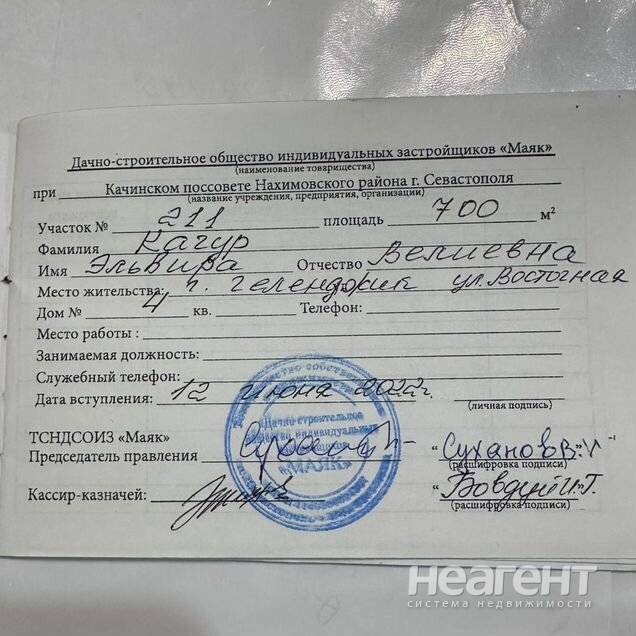 Дачно-строительное общество индивидуальных застройщиков «Маяк»
(наименование товарищества)
при Качинском поссовете Нахимовского района г. Севастополя
(название учреждения, предприятия, организации)
Участок № 211 площадь 700 м²
Фамилия Кагур
Имя Эльвира Отчество Велиевна
Место жительства: г. Геленджик ул. Восточная
Дом № 4 кв. Телефон:
Место работы :
Занимаемая должность:
Служебный телефон:
Дата вступления: 12 июня 2022г.
(личная подпись)
ТСНДСОИЗ «Маяк»
Председатель правления "Суханов В.И."
(расшифровка подписи)
Кассир-казначей: "Бовдуй И.Г.
(расшифровка подписи)
Дачно-строительное
общество индивидуальных
застройщиков
«МАЯК»
Неагент
система недвижимости